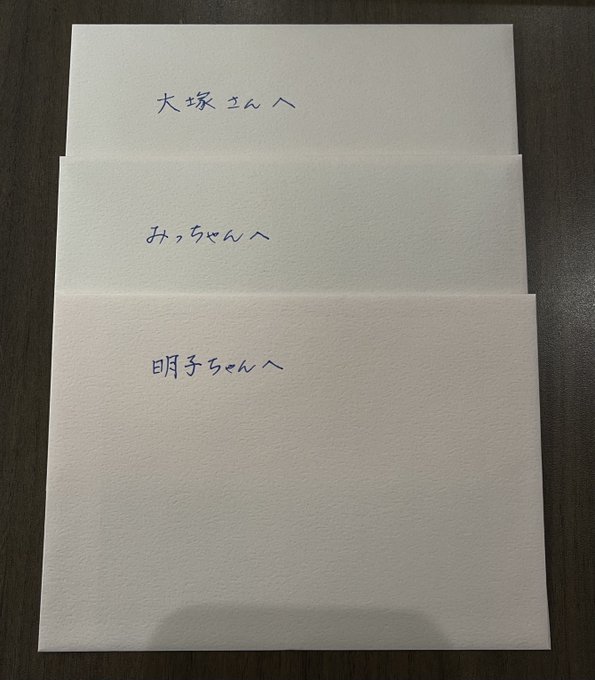 大塚さんへ
みっちゃんへ
明子ちゃんへ